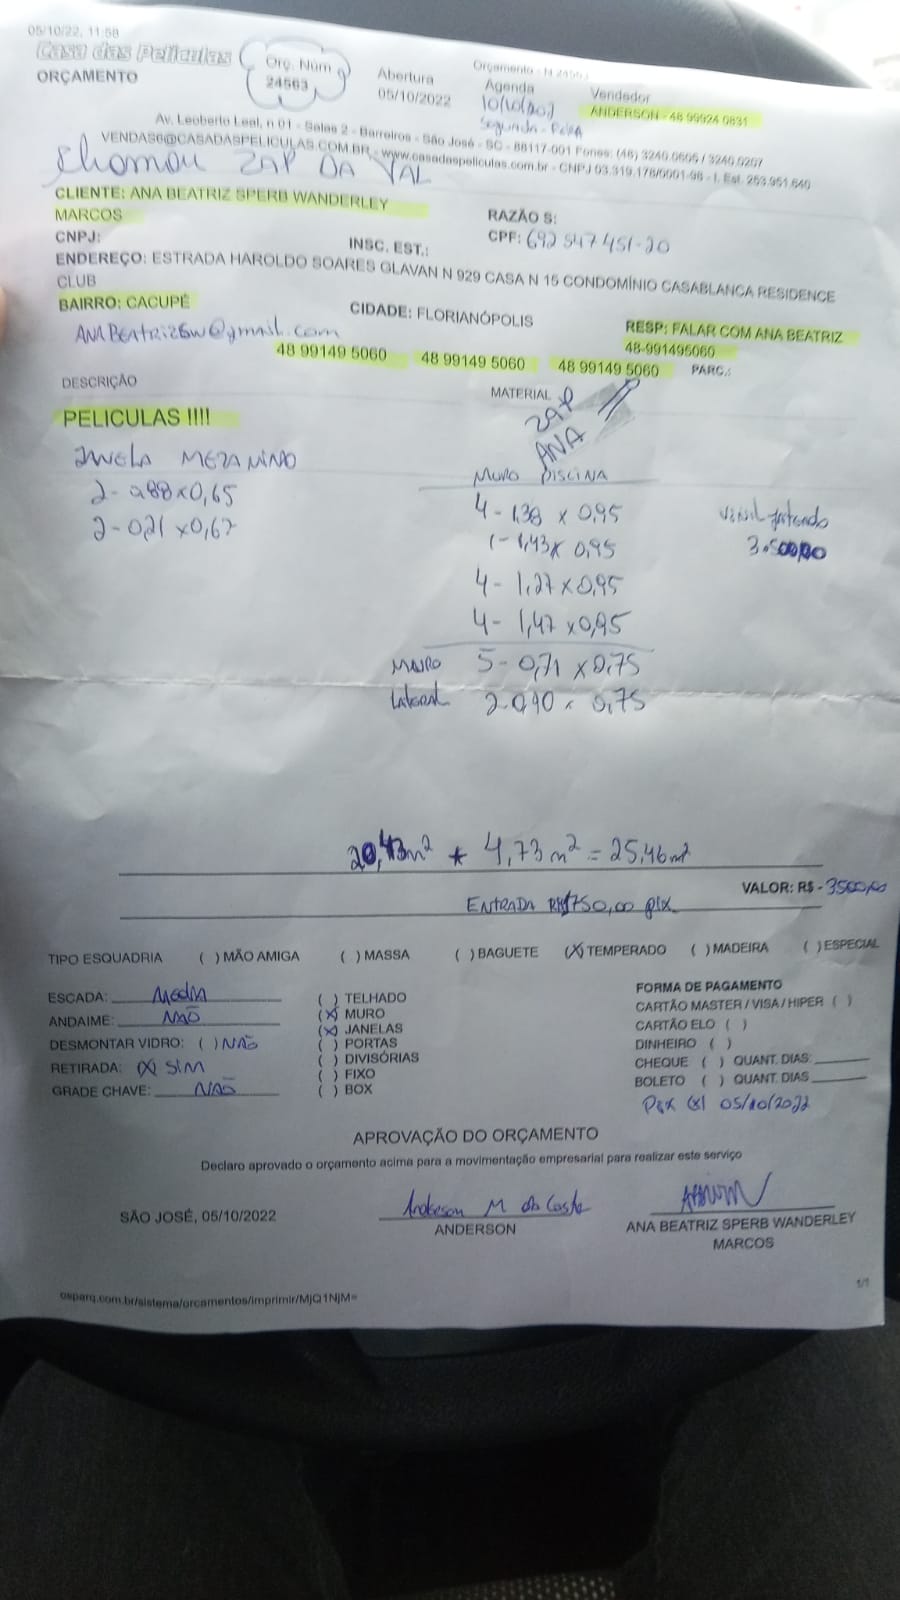 05/10/22, 11:58
Orçamento - N 24563
Casa das Peliculas
ORÇAMENTO
Orç. Núm
24563
Abertura
05/10/2022
Agenda
10/10/2022
Segunda-Feira
Vendedor
ANDERSON - 48 99924 0831
Av. Leoberto Leal, n 01 - Salas 2 - Barreiros - São José - SC - 88117-001 Fones: (48) 3240.0606 / 3240.0207
VENDAS6@CASADASPELICULAS.COM.BR - www.casadaspeliculas.com.br - CNPJ 03.319.178/0001-98 - I. Est. 253.951.640
chamou ZAP DA VAL
CLIENTE: ANA BEATRIZ SPERB WANDERLEY
MARCOS
RAZÃO S:
CNPJ:
INSC. EST.:
CPF: 692 547 451-20
ENDEREÇO: ESTRADA HAROLDO SOARES GLAVAN N 929 CASA N 15 CONDOMÍNIO CASABLANCA RESIDENCE
CLUB
BAIRRO: CACUPÉ
CIDADE: FLORIANÓPOLIS
RESP: FALAR COM ANA BEATRIZ
48-991495060
48 99149 5060 48 99149 5060 48 99149 5060 PARC.:
DESCRIÇÃO
MATERIAL
ZAP
ANA
PELICULAS !!!!
JANELA MEZANINO
2- 0,88x0,65
2- 0,21x0,67
MURO PISCINA
4- 1,38 x 0,95
1- 1,43x 0,95
4- 1,27x0,95
4- 1,47x0,95
VINIL jateado
3.500,00
MURO 5- 0,71 x 0,75
Lateral 2- 0,90 x 0,75
20,73m² * 4,73m² = 25,46m²
VALOR: R$ - 3500,00
ENTRADA R$1750,00 pix
TIPO ESQUADRIA ( ) MÃO AMIGA ( ) MASSA ( ) BAGUETE (X) TEMPERADO ( ) MADEIRA ( ) ESPECIAL
ESCADA: MEDIA
ANDAIME: NÃO
DESMONTAR VIDRO: ( ) NÃO
RETIRADA: (X) SIM
GRADE CHAVE: NÃO
( ) TELHADO
(X) MURO
(X) JANELAS
( ) PORTAS
( ) DIVISÓRIAS
( ) FIXO
( ) BOX
FORMA DE PAGAMENTO
CARTÃO MASTER / VISA / HIPER ( )
CARTÃO ELO ( )
DINHEIRO ( )
CHEQUE ( ) QUANT. DIAS:
BOLETO ( ) QUANT. DIAS
Pix (x) 05/10/2022
APROVAÇÃO DO ORÇAMENTO
Declaro aprovado o orçamento acima para a movimentação empresarial para realizar este serviço
SÃO JOSÉ, 05/10/2022
Anderson M da Costa
ANDERSON
ANA BEATRIZ SPERB WANDERLEY
MARCOS
osparq.com.br/sistema/orcamentos/imprimir/MjQ1NjM=
1/1